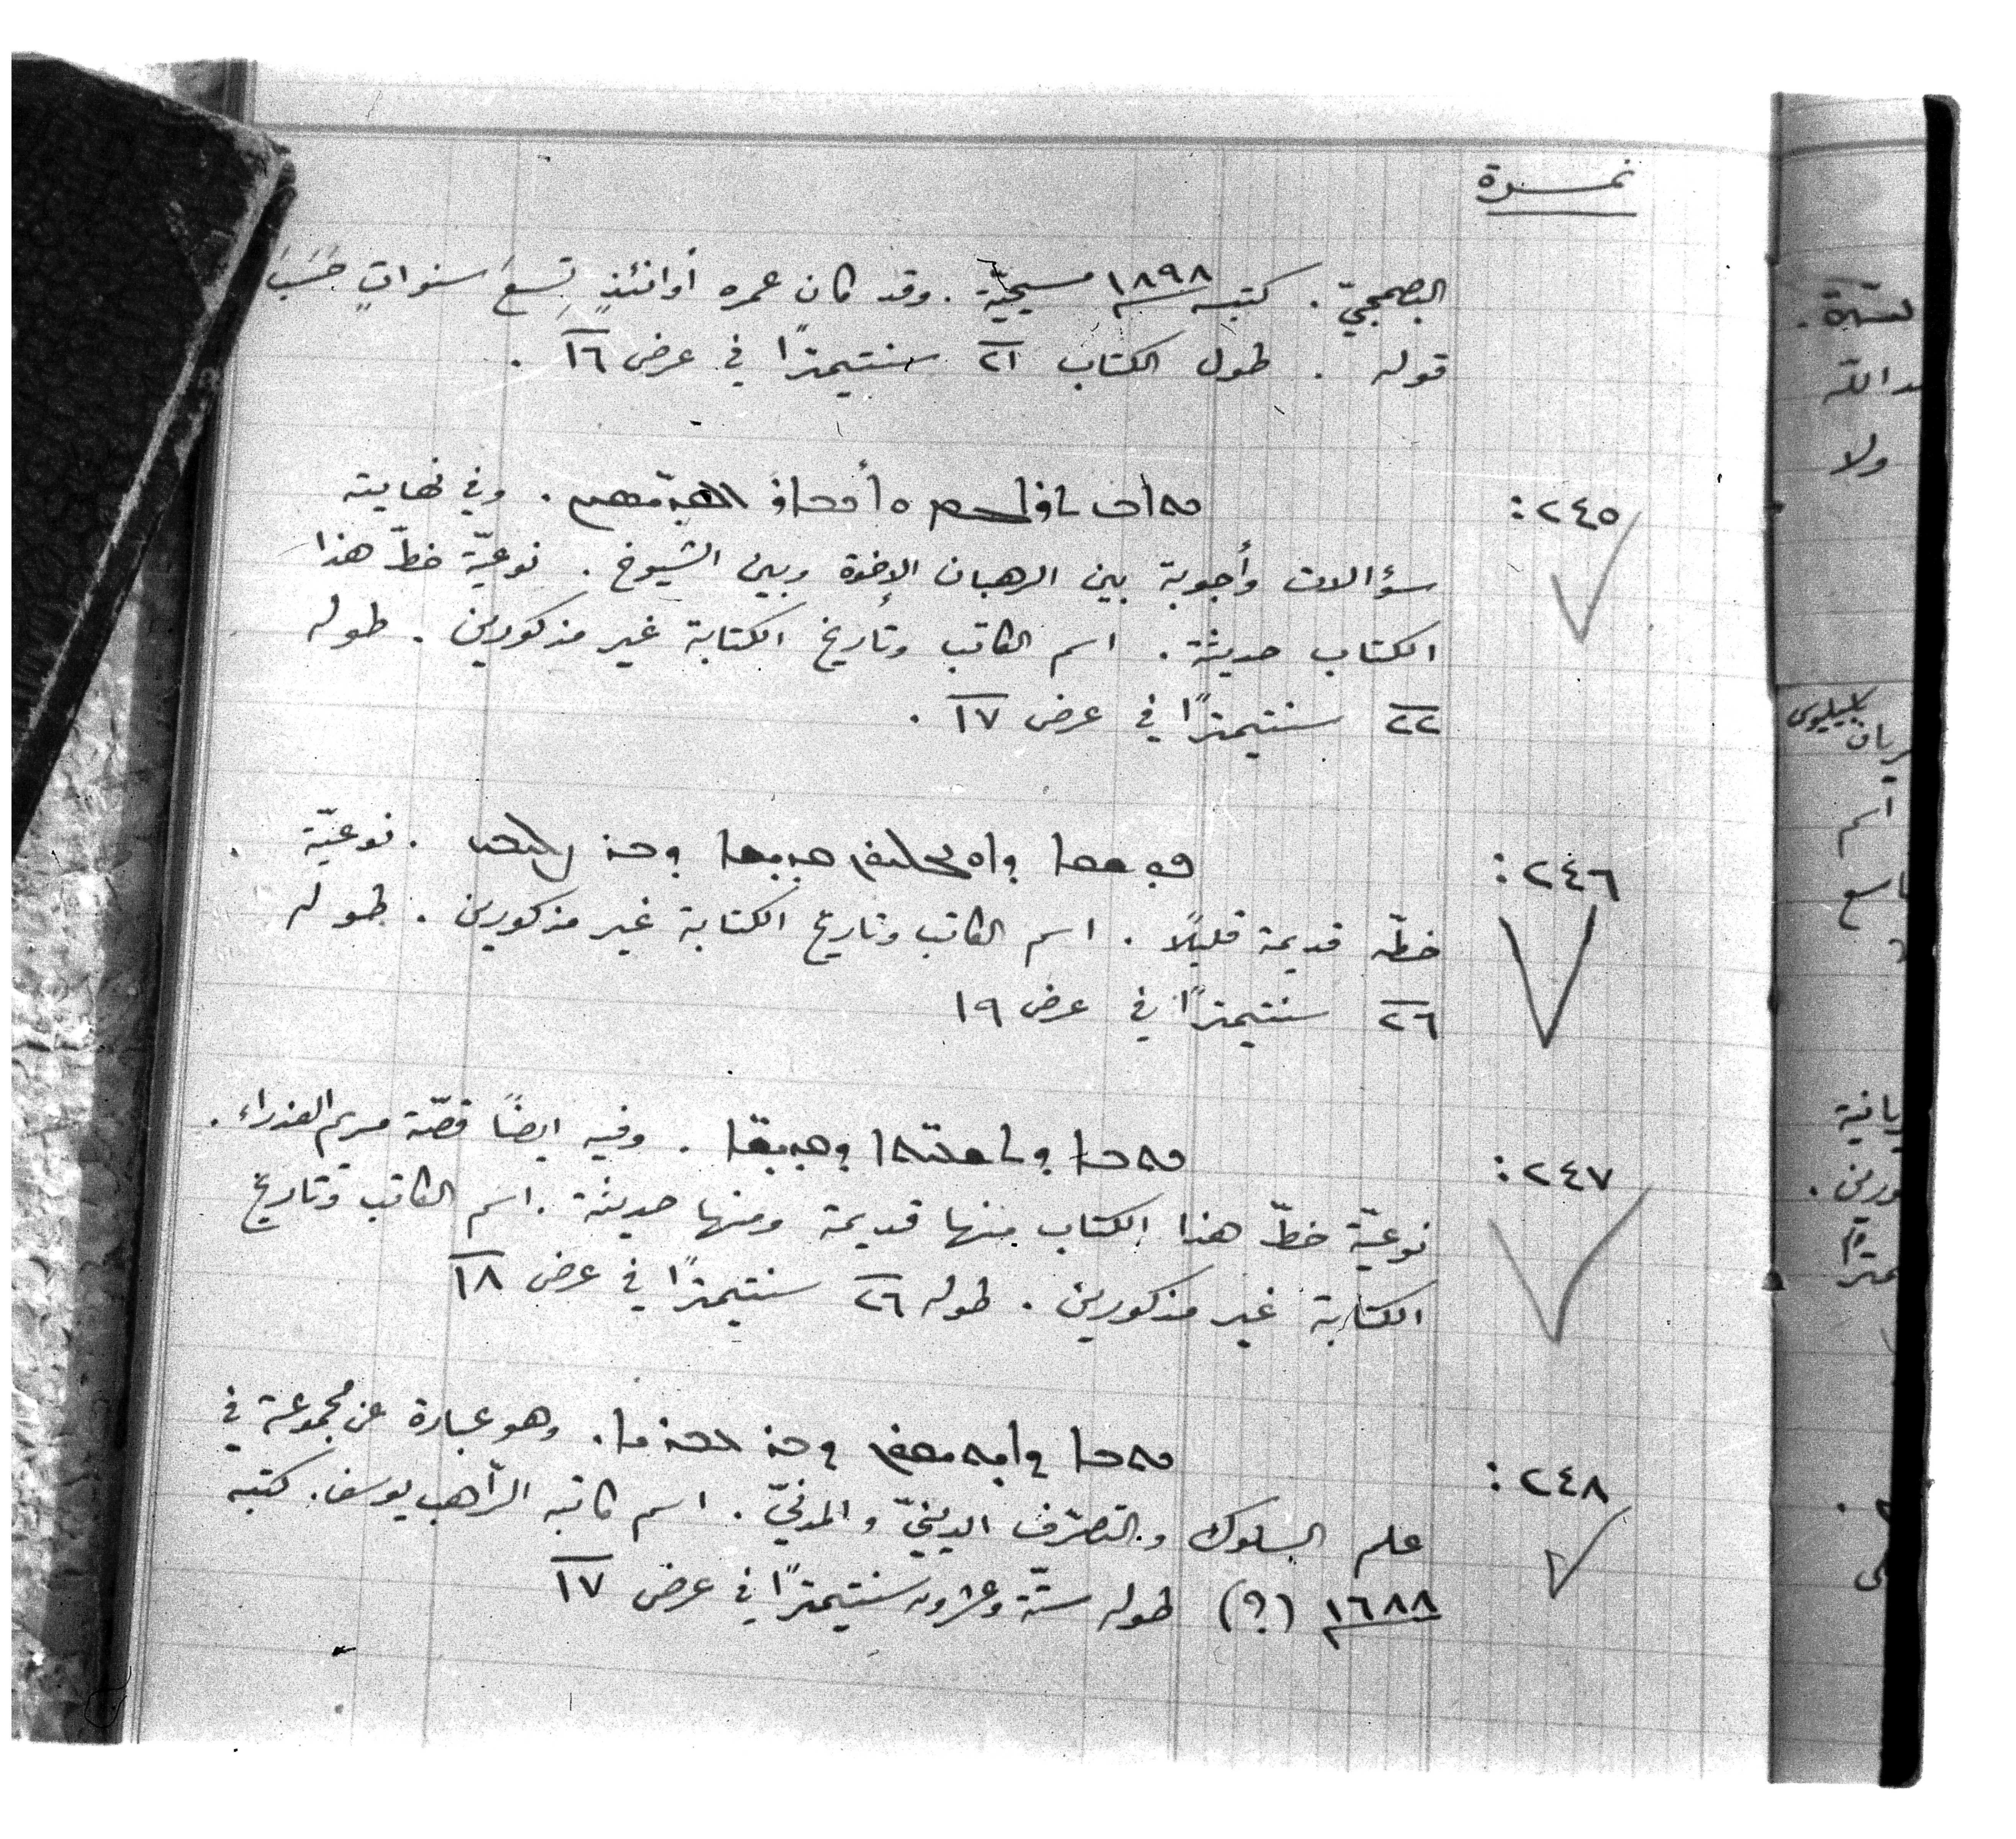 نمرة
البصمجيّ. كتبه ١٨٩٨ مسيحيّة. وقد كان عمره أوانئذٍ تِسعَ سنواتٍ حَسَبَ
قوله. طول الكتاب ٢١ سنتيمترًا في عرض ١٦.
٢٤٥: . وفي نهايته
سؤالات وأجوبة بين الرهبان الإخوة وبين الشيوخ. نوعيّة خطّ هذا
الكتاب حديثة. اسم الكاتب وتأريخ الكتابة غير مذكورين. طوله
٢٢ سنتيمترًا في عرض ١٧.
٢٤٦: ܦܘܫܩܐ ܕܐܘܢܓܠܝܘܢ ܩܕܝܫܐ ܕܒܪ ܨܠܝܒܝ. نوعيّة
خطّه قديمة قليلًا. اسم الكاتب وتاريخ الكتابة غير مذكورين. طوله
٢٦ سنتيمترًا في عرض ١٩
٢٤٧: ܟܬܒܐ ܕܬܫܥܝܬܐ ܕܩܕܝܫܐ. وفيه ايضًا قصّة مريم العذراء.
نوعيّة خطّ هذا الكتاب منها قديمة ومنها حديثة. اسم الكاتب وتاريخ
الكتابة غير مذكورين. طوله ٢٦ سنتيمترًا في عرض ١٨
٢٤٨: ܟܬܒܐ ܕܐܝܬܝܩܘܢ ܕܒܪ ܥܒܪܝܐ. وهو عبارة عن مجموعة في
علم السلوك والتصرّف الدينيّ والمدنيّ. اسم كاتبه الرّاهب يوسف. كتبه
١٦٨٨ (؟) طوله ستّة وعشرون سنتيمترًا في عرض ١٧